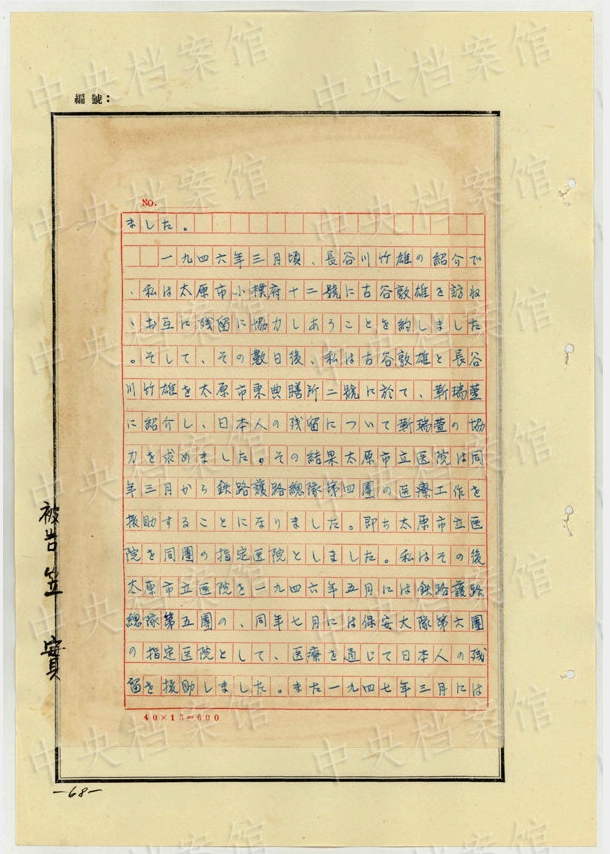 編號：
NO.
ました。
一九四六年三月頃、長谷川竹雄の紹介で
、私は太原市小樸府十二號に古谷敦雄を訪ね
、お互に残留に協力しあうことを約しました
。そして、その数日後、私は古谷敦雄と長谷
川竹雄を太原市東典膳所二號に於て、靳瑞萱
に紹介し、日本人の残留について靳瑞萱の協
力を求めました。その結果太原市立医院は同
年三月から鉄路護路總隊第四團の医療工作を
援助することになりました。即ち太原市立医
院を同團の指定医院としました。私はその後
太原市立医院を一九四六年五月には鉄路護路
總隊第五團の、同年七月には保安大隊第六團
の指定医院として、医療を通じて日本人の残
留を援助しました。また一九四七年三月には
40×15=600
被告 笠 實
-68-
中央档案馆